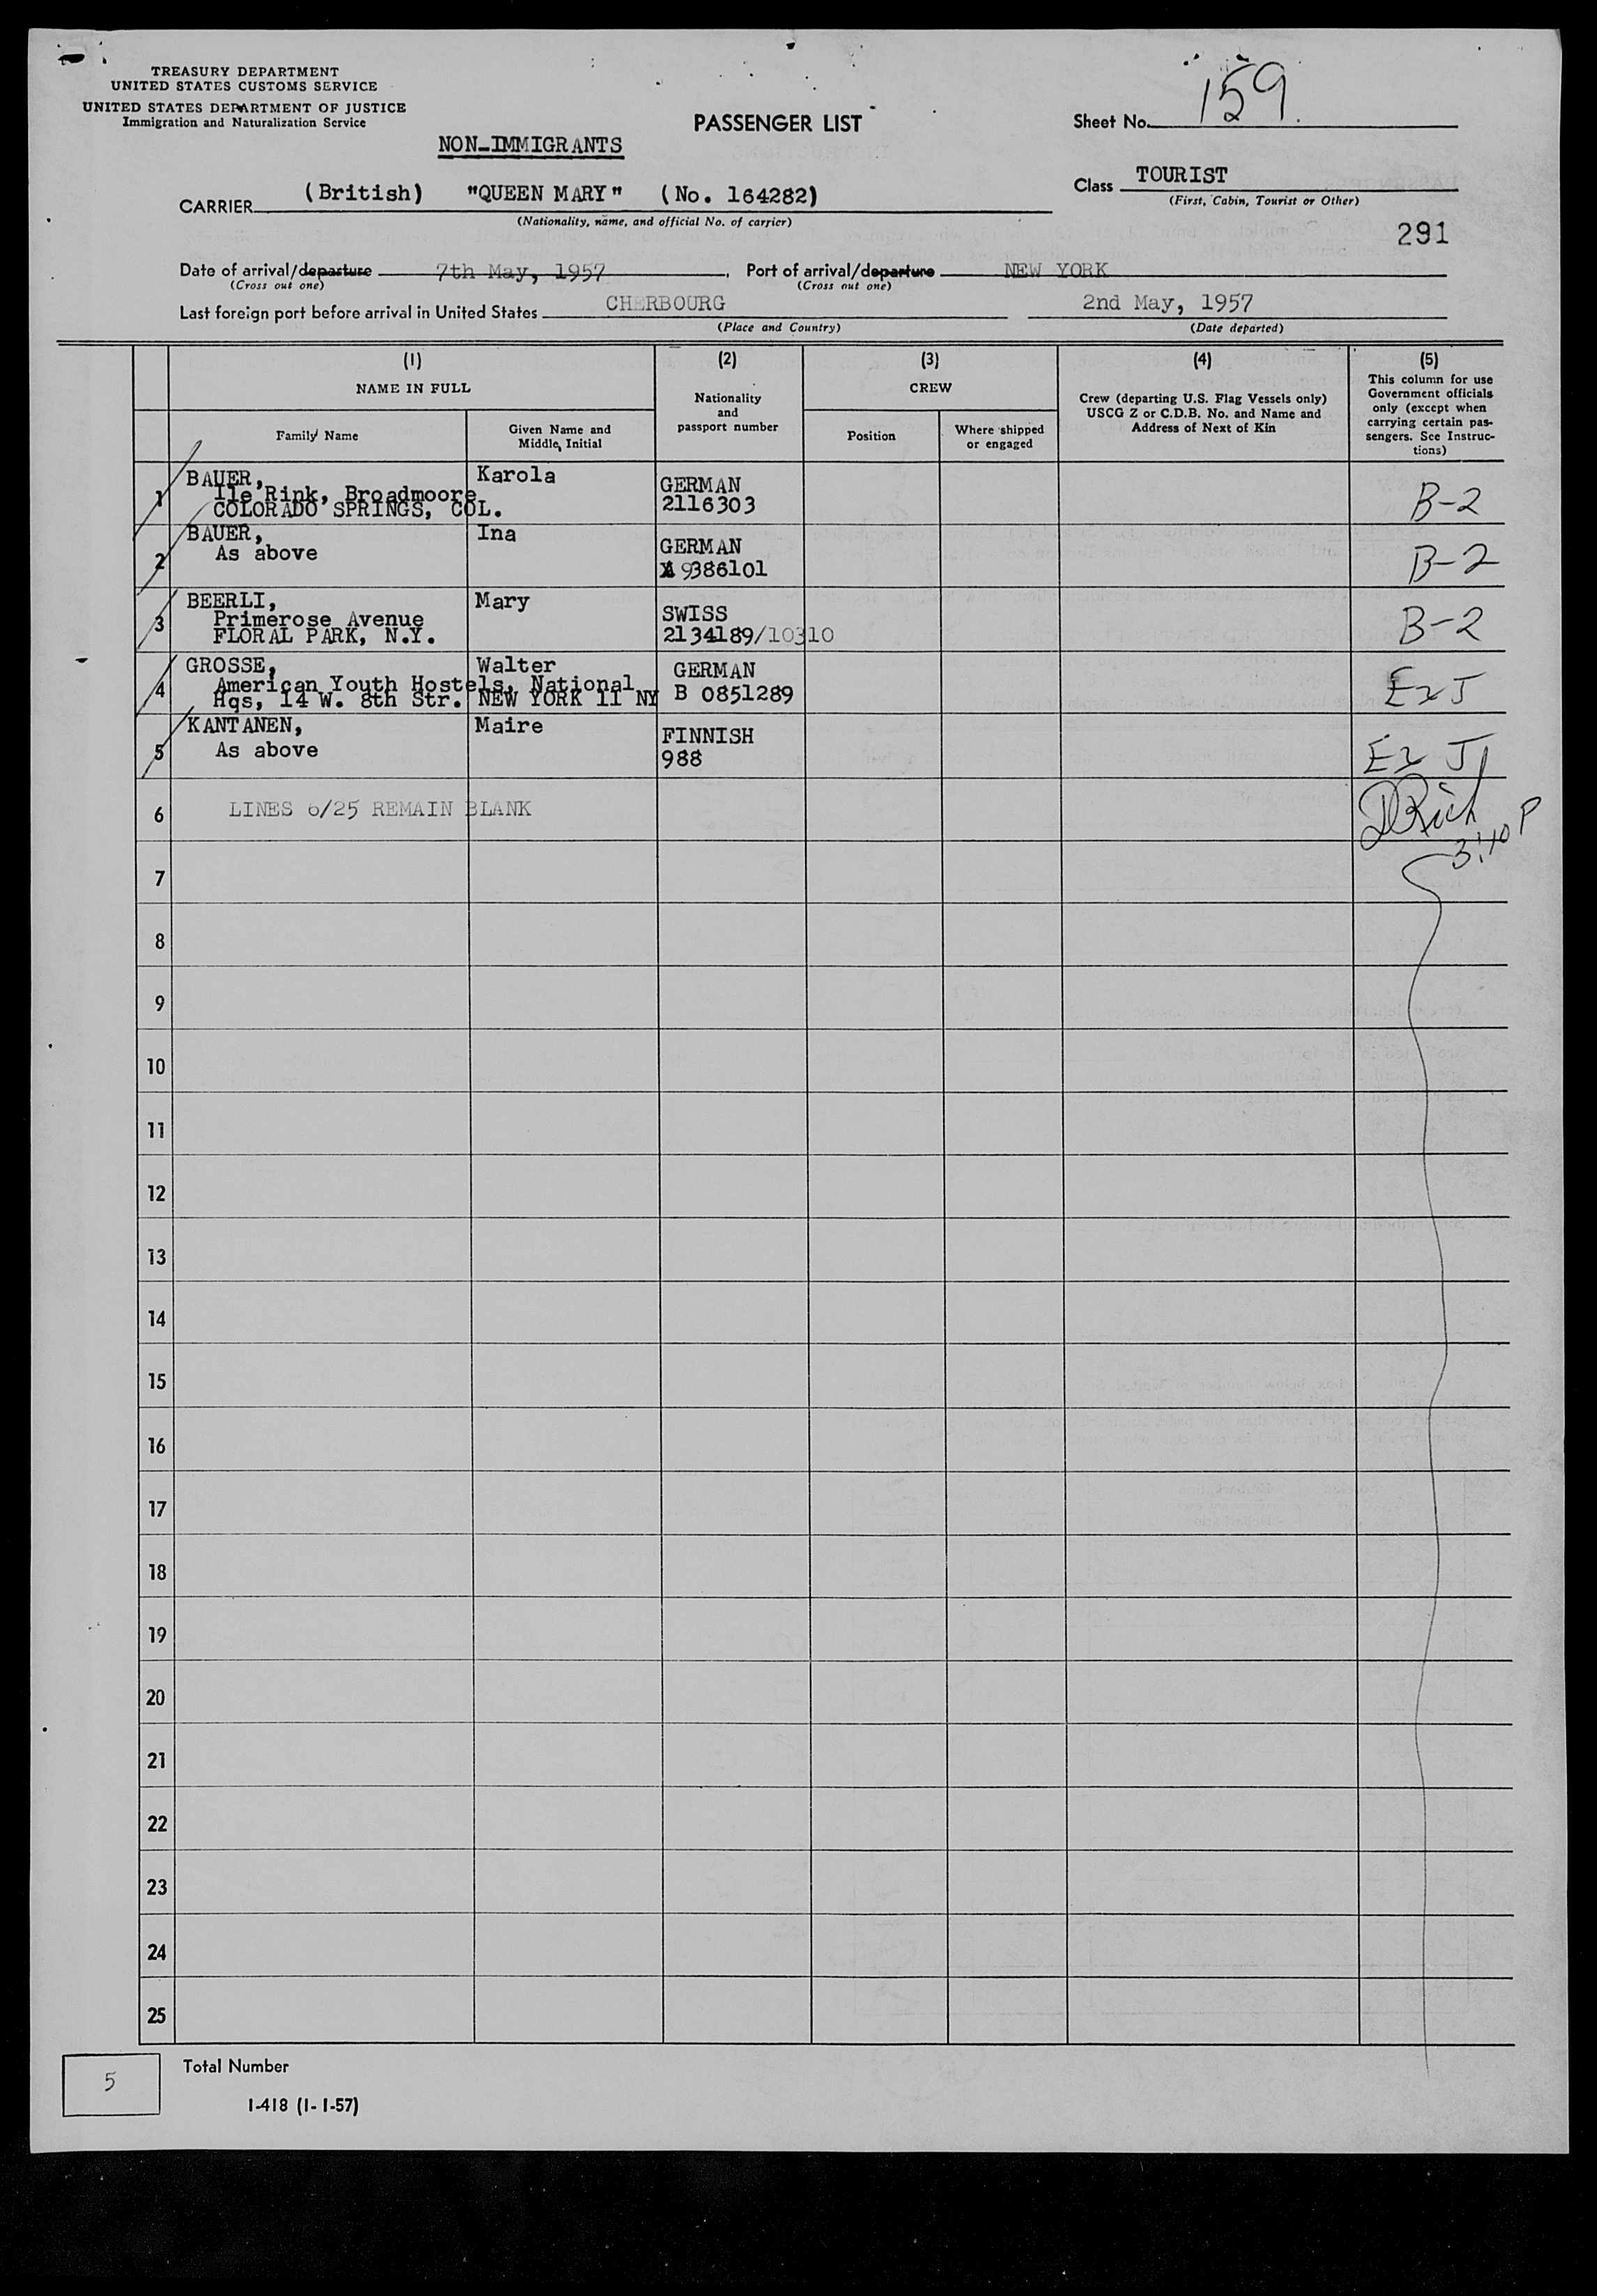 TREASURY DEPARTMENT
UNITED STATES CUSTOMS SERVICE
UNITED STATES DEPARTMENT OF JUSTICE
Immigration and Naturalization Service
PASSENGER LIST
Sheet No. 159.
NON-IMMIGRANTS
Class TOURIST
(First, Cabin, Tourist or Other)
CARRIER (British) "QUEEN MARY" (No. 164282)
(Nationality, name, and official No. of carrier)
291
Date of arrival/departure 7th May, 1957, Port of arrival/departure NEW YORK
(Cross out one) (Cross out one)
Last foreign port before arrival in United States CHERBOURG 2nd May, 1957
(Place and Country) (Date departed)
(1) (2) (3) (4) (5)
NAME IN FULL
Family Name
Given Name and
Middle Initial
Nationality
and
passport number
CREW
Position
Where shipped
or engaged
Crew (departing U.S. Flag Vessels only)
USCG Z or C.D.B. No. and Name and
Address of Next of Kin
This column for use
Government officials
only (except when
carrying certain pas-
sengers. See Instruc-
tions)
1 BAUER, Karola GERMAN B-2
Ile Rink, Broadmoore 2116303
COLORADO SPRINGS, COL.
2 BAUER, Ina GERMAN B-2
As above 9386101
3 BEERLI, Mary SWISS B-2
Primerose Avenue 2134189/10310
FLORAL PARK, N.Y.
4 GROSSE, Walter GERMAN Ex J
American Youth Hostels, National B 0851289
Hqs, 14 W. 8th Str. NEW YORK 11 NY
5 KANTANEN, Maire FINNISH Ex J
As above 988
6 LINES 6/25 REMAIN BLANK DRich
3:10 P
7
8
9
10
11
12
13
14
15
16
17
18
19
20
21
22
23
24
25
5 Total Number
I-418 (1-1-57)